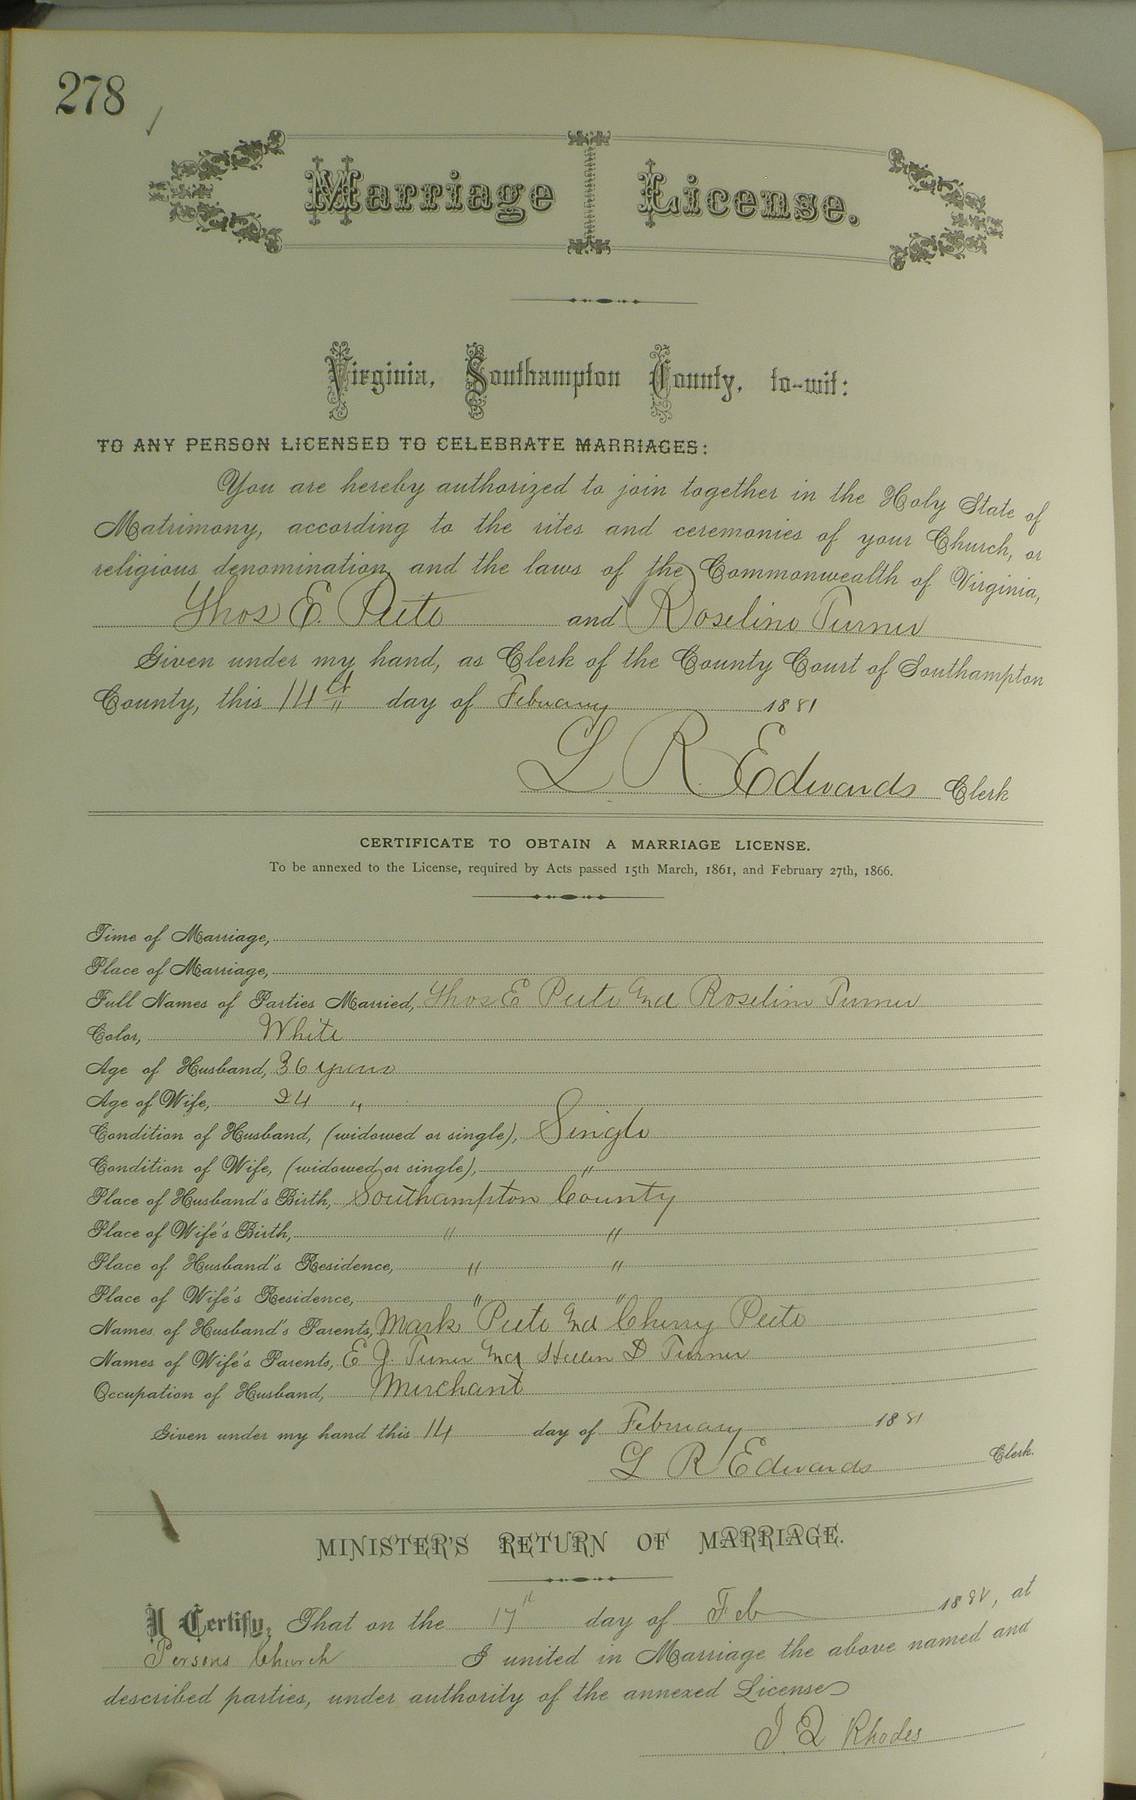 278
Marriage License.
Virginia, Southampton County, to-wit:
TO ANY PERSON LICENSED TO CELEBRATE MARRIAGES:
You are hereby authorized to join together in the Holy State of
Matrimony, according to the rites and ceremonies of your Church, or
religious denomination, and the laws of the Commonwealth of Virginia,
Thos E. Peete and Roseline Turner
Given under my hand, as Clerk of the County Court of Southampton
County, this 14th day of February 1881
L R Edwards Clerk
CERTIFICATE TO OBTAIN A MARRIAGE LICENSE.
To be annexed to the License, required by Acts passed 15th March, 1861, and February 27th, 1866.
Time of Marriage,
Place of Marriage,
Full Names of Parties Married, Thos E Peete and Roseline Turner
Color, White
Age of Husband, 36 years
Age of Wife, 24 "
Condition of Husband, (widowed or single), Single
Condition of Wife, (widowed or single), "
Place of Husband's Birth, Southampton County
Place of Wife's Birth, " "
Place of Husband's Residence, " "
Place of Wife's Residence, " "
Names of Husband's Parents, Mark Peete and Cherry Peete
Names of Wife's Parents, E J. Turner and Hellen D Turner
Occupation of Husband, Merchant
Given under my hand this 14 day of February 1881
L R Edwards Clerk.
MINISTER'S RETURN OF MARRIAGE.
I Certify, That on the 17th day of Feb 188, at
Persons Church I united in Marriage the above named and
described parties, under authority of the annexed License
J. Q Rhodes